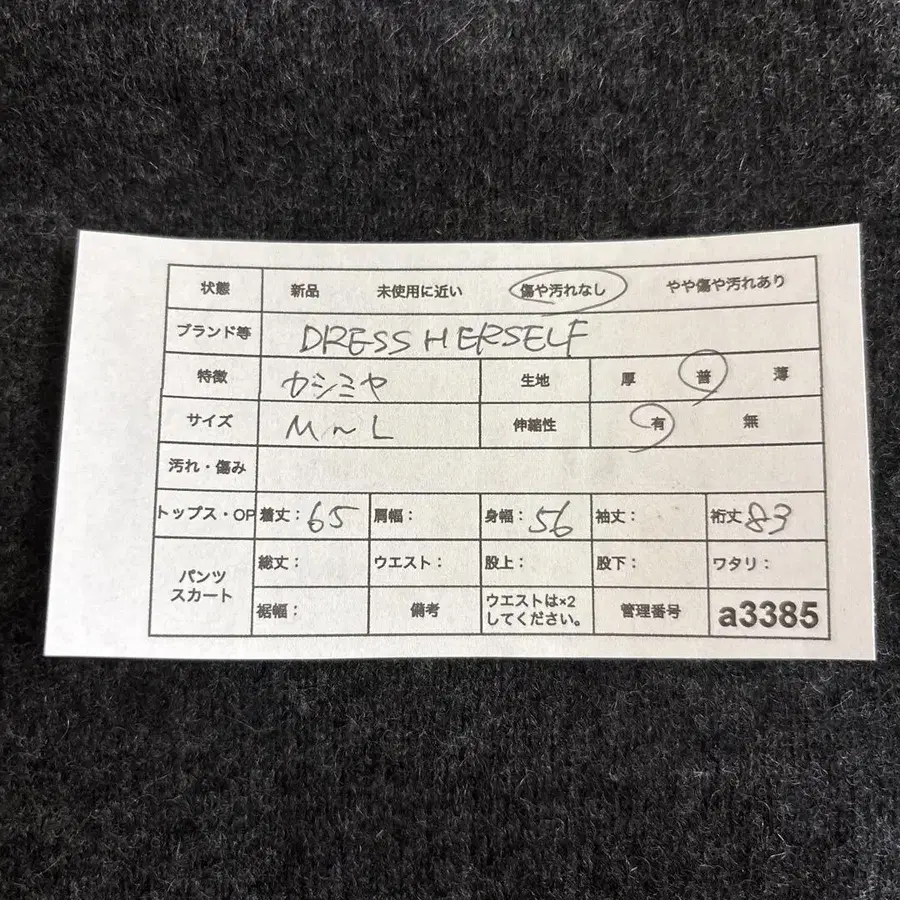 状態 新品 未使用に近い 傷や汚れなし やや傷や汚れあり
ブランド等 DRESS HERSELF
特徴 カシミヤ 生地 厚 普 薄
サイズ M~L 伸縮性 有 無
汚れ・傷み
トップス・OP 着丈:65 肩幅: 身幅:56 袖丈: 裄丈 83
パンツ
スカート
総丈: ウエスト: 股上: 股下: ワタリ:
裾幅: 備考 ウエストは×2
してください。 管理番号 a3385